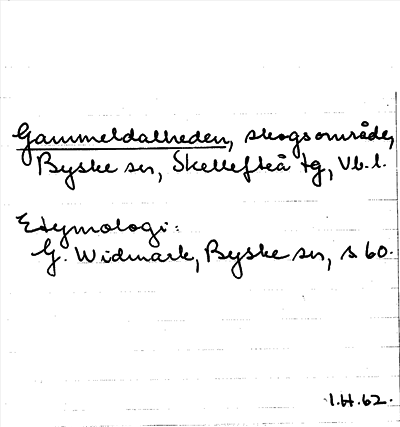 Gammeldalheden, skogsområde,
Byske sn, Skellefteå tg, Vb. l.
Etymologi:
G. Widmark, Byske sn, s 60.
I.H.62.